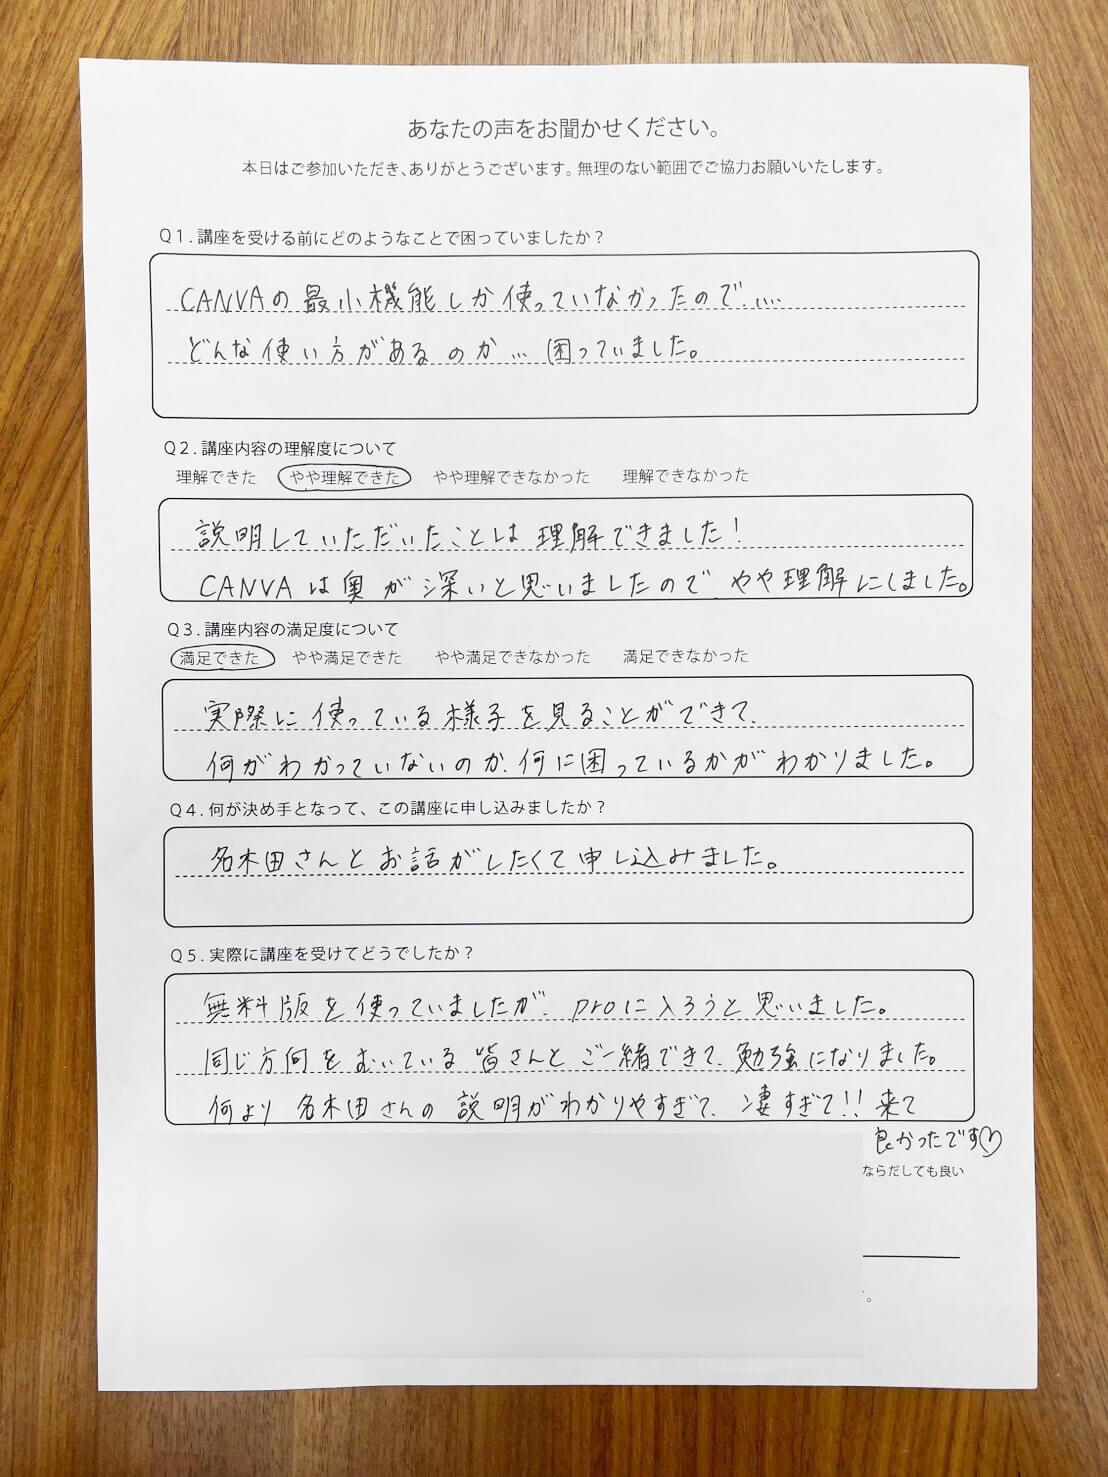 あなたの声をお聞かせください。
本日はご参加いただき、ありがとうございます。無理のない範囲でご協力お願いいたします。
Q1.講座を受ける前にどのようなことで困っていましたか？
CANVAの最小機能しか使っていなかったので.....
どんな使い方があるのか... 困っていました。
Q2.講座内容の理解度について
理解できた　やや理解できた　やや理解できなかった　理解できなかった
説明していただいたことは理解できました！
CANVAは奥が深いと思いましたので、やや理解にしました。
Q3.講座内容の満足度について
満足できた　やや満足できた　やや満足できなかった　満足できなかった
実際に使っている様子を見ることができて、
何がわかっていないのか、何に困っているかがわかりました。
Q4.何が決め手となって、この講座に申し込みましたか？
名木田さんとお話がしたくて申し込みました。
Q5.実際に講座を受けてどうでしたか？
無料版を使っていましたが、proに入ろうと思いました。
同じ方向をむいている皆さんとご一緒できて、勉強になりました。
何より名木田さんの説明がわかりやすぎて、凄すぎて!! 来て
良かったです♡
ならだしても良い
。